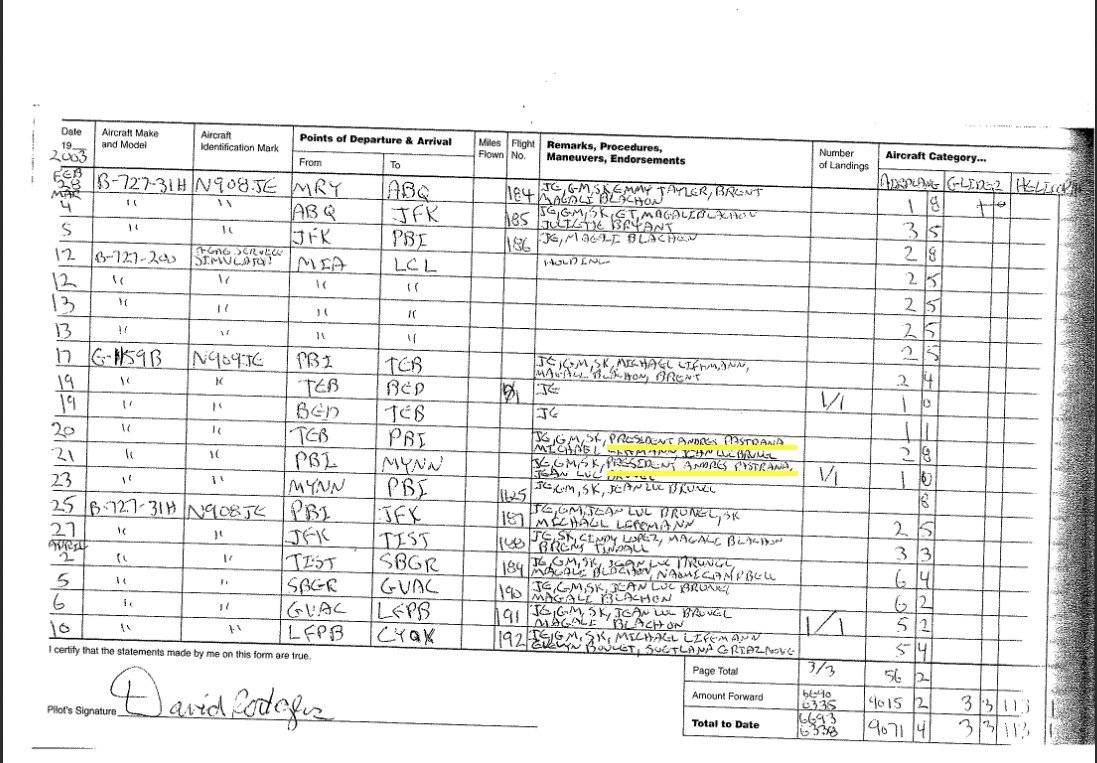 Date
19
2003
Aircraft Make and Model
Aircraft Identification Mark
Points of Departure & Arrival
From
To
Miles Flown
Flight No.
Remarks, Procedures, Maneuvers, Endorsements
Number of Landings
Aircraft Category...
AIRPLANE GLIDER
FEB 28 B-727-31H N908JE MRY ABQ 184 JE, GM, SK, EMMY TAYLER, BRENT 1 8
MAGALI BLACHON
MAR 4 " " ABQ JFK 185 JE, GM, SK, ET, MAGALI BLACHON 3 5
5 " " JFK PBI 186 JE, MAGALI BLACHON 2 8
12 B-727-200 SIMULATOR MIA LCL HOLDING 2 5
12 " " " " 2 5
13 " " " " 2 5
13 " " " " 2 5
17 G-1159B N909JE PBI TEB JE, GM, SK, MICHAEL 2 4
MAGALI BLACHON, BRENT
19 " " TEB BED JE 1/1 1 0
19 " " BED TEB JE 1 1
20 " " TEB PBI JE, GM, SK, PRESIDENT ANDRES PASTRANA 2 8
MICHAEL JEAN LUC BRUNEL
21 " " PBI MYNN JE, GM, SK, PRESIDENT ANDRES PASTRANA, 1/1 1 0
JEAN LUC BRUNEL
23 " " MYNN PBI 1625 JE, GM, SK, JEAN LUC BRUNEL 8
25 B-727-31H N908JE PBI JFK 187 JE, GM, JEAN LUC BRUNEL, SK 2 5
MICHAEL
27 " " JFK TIST 188 JE, SK, CINDY LOPEZ, MAGALE BLACHON 3 3
BRENT TINDALL
APRIL 2 " " TIST SBGR 189 JE, GM, SK, JEAN LUC BRUNEL 6 4
MAGALE BLACHON, NAOMI CAMPBELL
5 " " SBGR GVAC 190 JE, GM, SK, JEAN LUC BRUNEL 6 2
MAGALI BLACHON
6 " " GVAC LFPB 191 JE, GM, SK, JEAN LUC BRUNEL 1/1 5 2
MAGALE BLACHON
10 " " LFPB CYQX 192 JE, GM, SK, MICHAEL 5 4
I certify that the statements made by me on this form are true.
Page Total 3/3 56 2
Amount Forward 6690 6335 9015 2 3 3 113
Total to Date 6693 6338 9071 4 3 3 113
Pilot's Signature David Rodgers